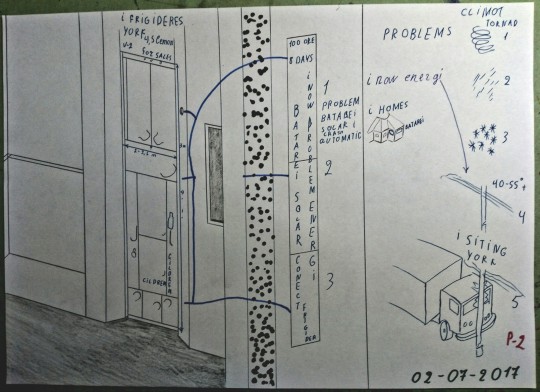 i FRIGIDERES
YORK 4,5 Cemon
V-2 FOR SALES
2-2,5 m
CILDREN
CILDREN
100 ORE
8 DAYS
i NOW PROBLEM ENERGI
BATAREI SOLAR
CONECT FRIGIDER
1
PROBLEM
BATAREI
SOLAR i
CRASH
AUTOMATIC
2
3
PROBLEMS
i now energi
i HOMES
BATAREI
CLIMOT
TORNAD
1
2
3
40-55°+
4
i SITING
YORK
5
P-2
02-07-2017